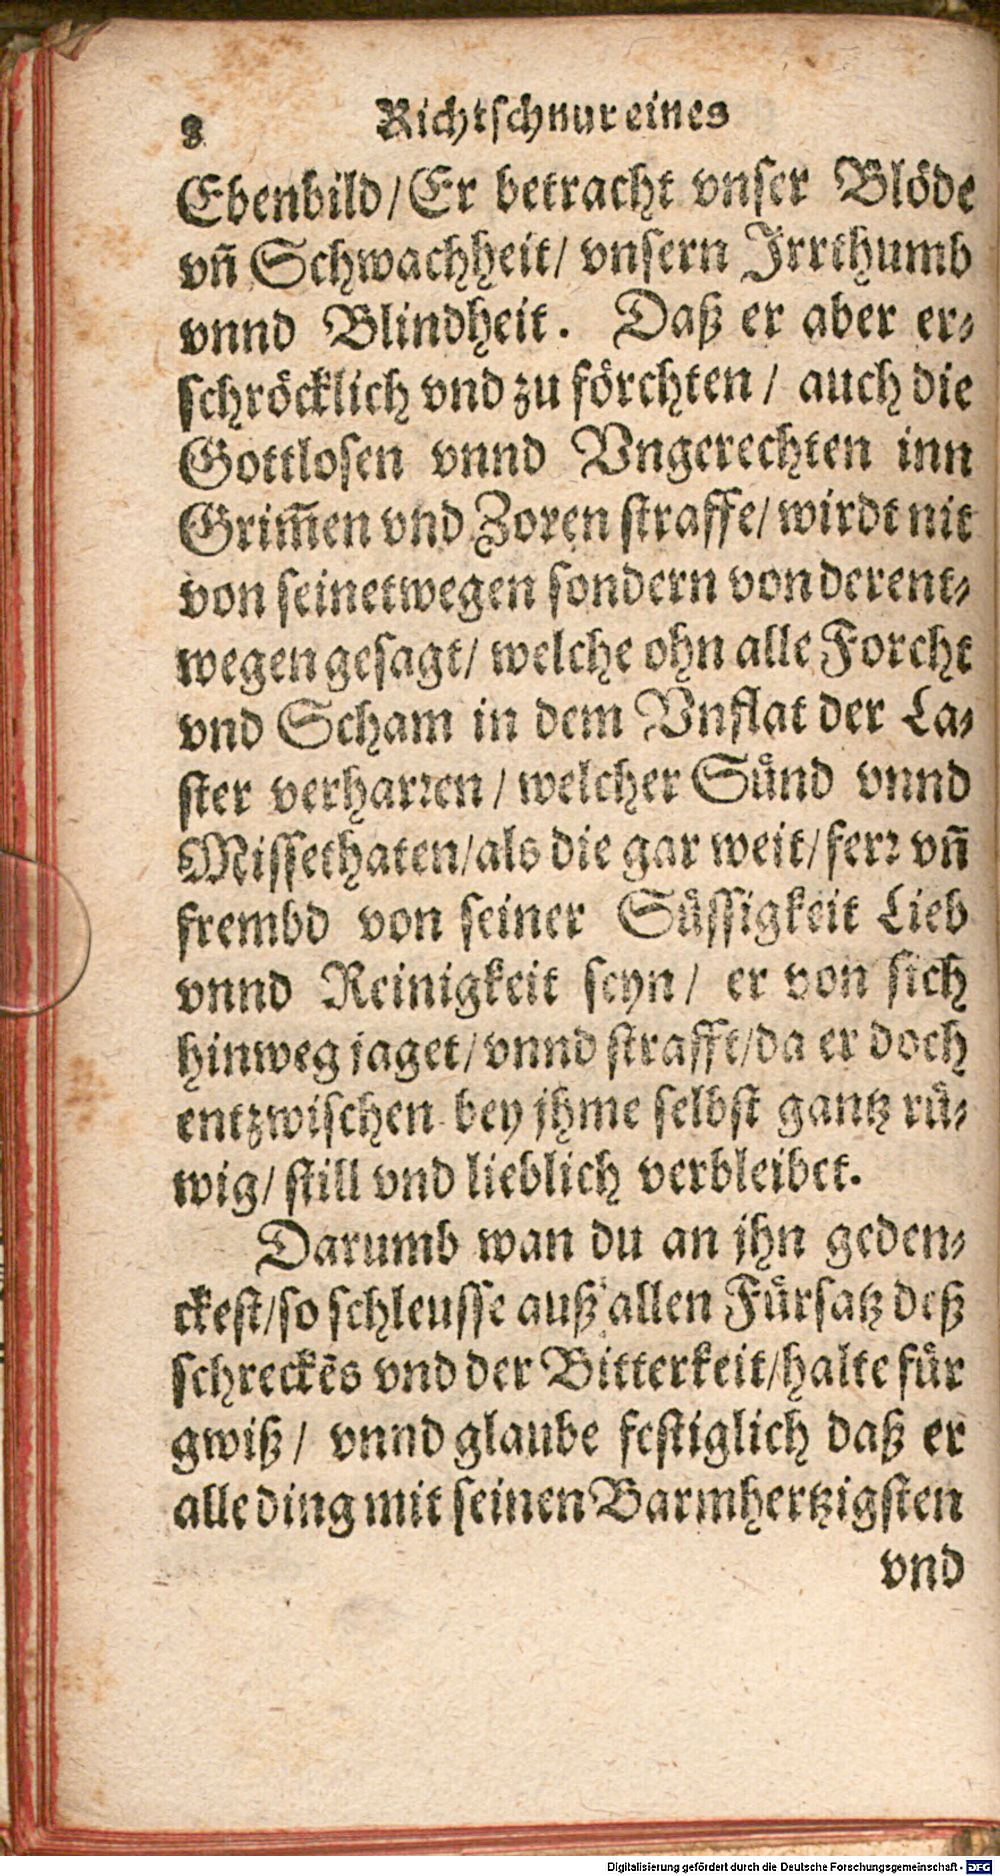 8 Richtschnur eines
Ebenbild/ Er betracht vnser Blöde
vñ Schwachheit/ vnsern Irrthumb
vnnd Blindheit. Daß er aber er-
schröcklich vnd zu förchten/ auch die
Gottlosen vnnd Vngerechten inn
Grim̃en vnd Zoren straffe/ wirdt nit
von seinetwegen sondern von derent-
wegen gesagt/ welche ohn alle Forcht
vnd Scham in dem Vnflat der La-
ster verharren/ welcher Sünd vnnd
Missethaten/ als die gar weit/ ferr vñ
frembd von seiner Süssigkeit Lieb
vnnd Reinigkeit seyn/ er von sich
hinweg jaget/ vnnd strafft/ da er doch
entzwischen bey jhme selbst gantz rü-
wig/ still vnd lieblich verbleibet.
Darumb wan du an jhn geden-
ckest/ so schleusse auß allen Fürsatz deß
schreckẽs vnd der Bitterkeit/ halte für
gwiß/ vnnd glaube festiglich daß er
alle ding mit seinen Barmhertzigsten
vnd
Digitalisierung gefördert durch die Deutsche Forschungsgemeinschaft - DFG